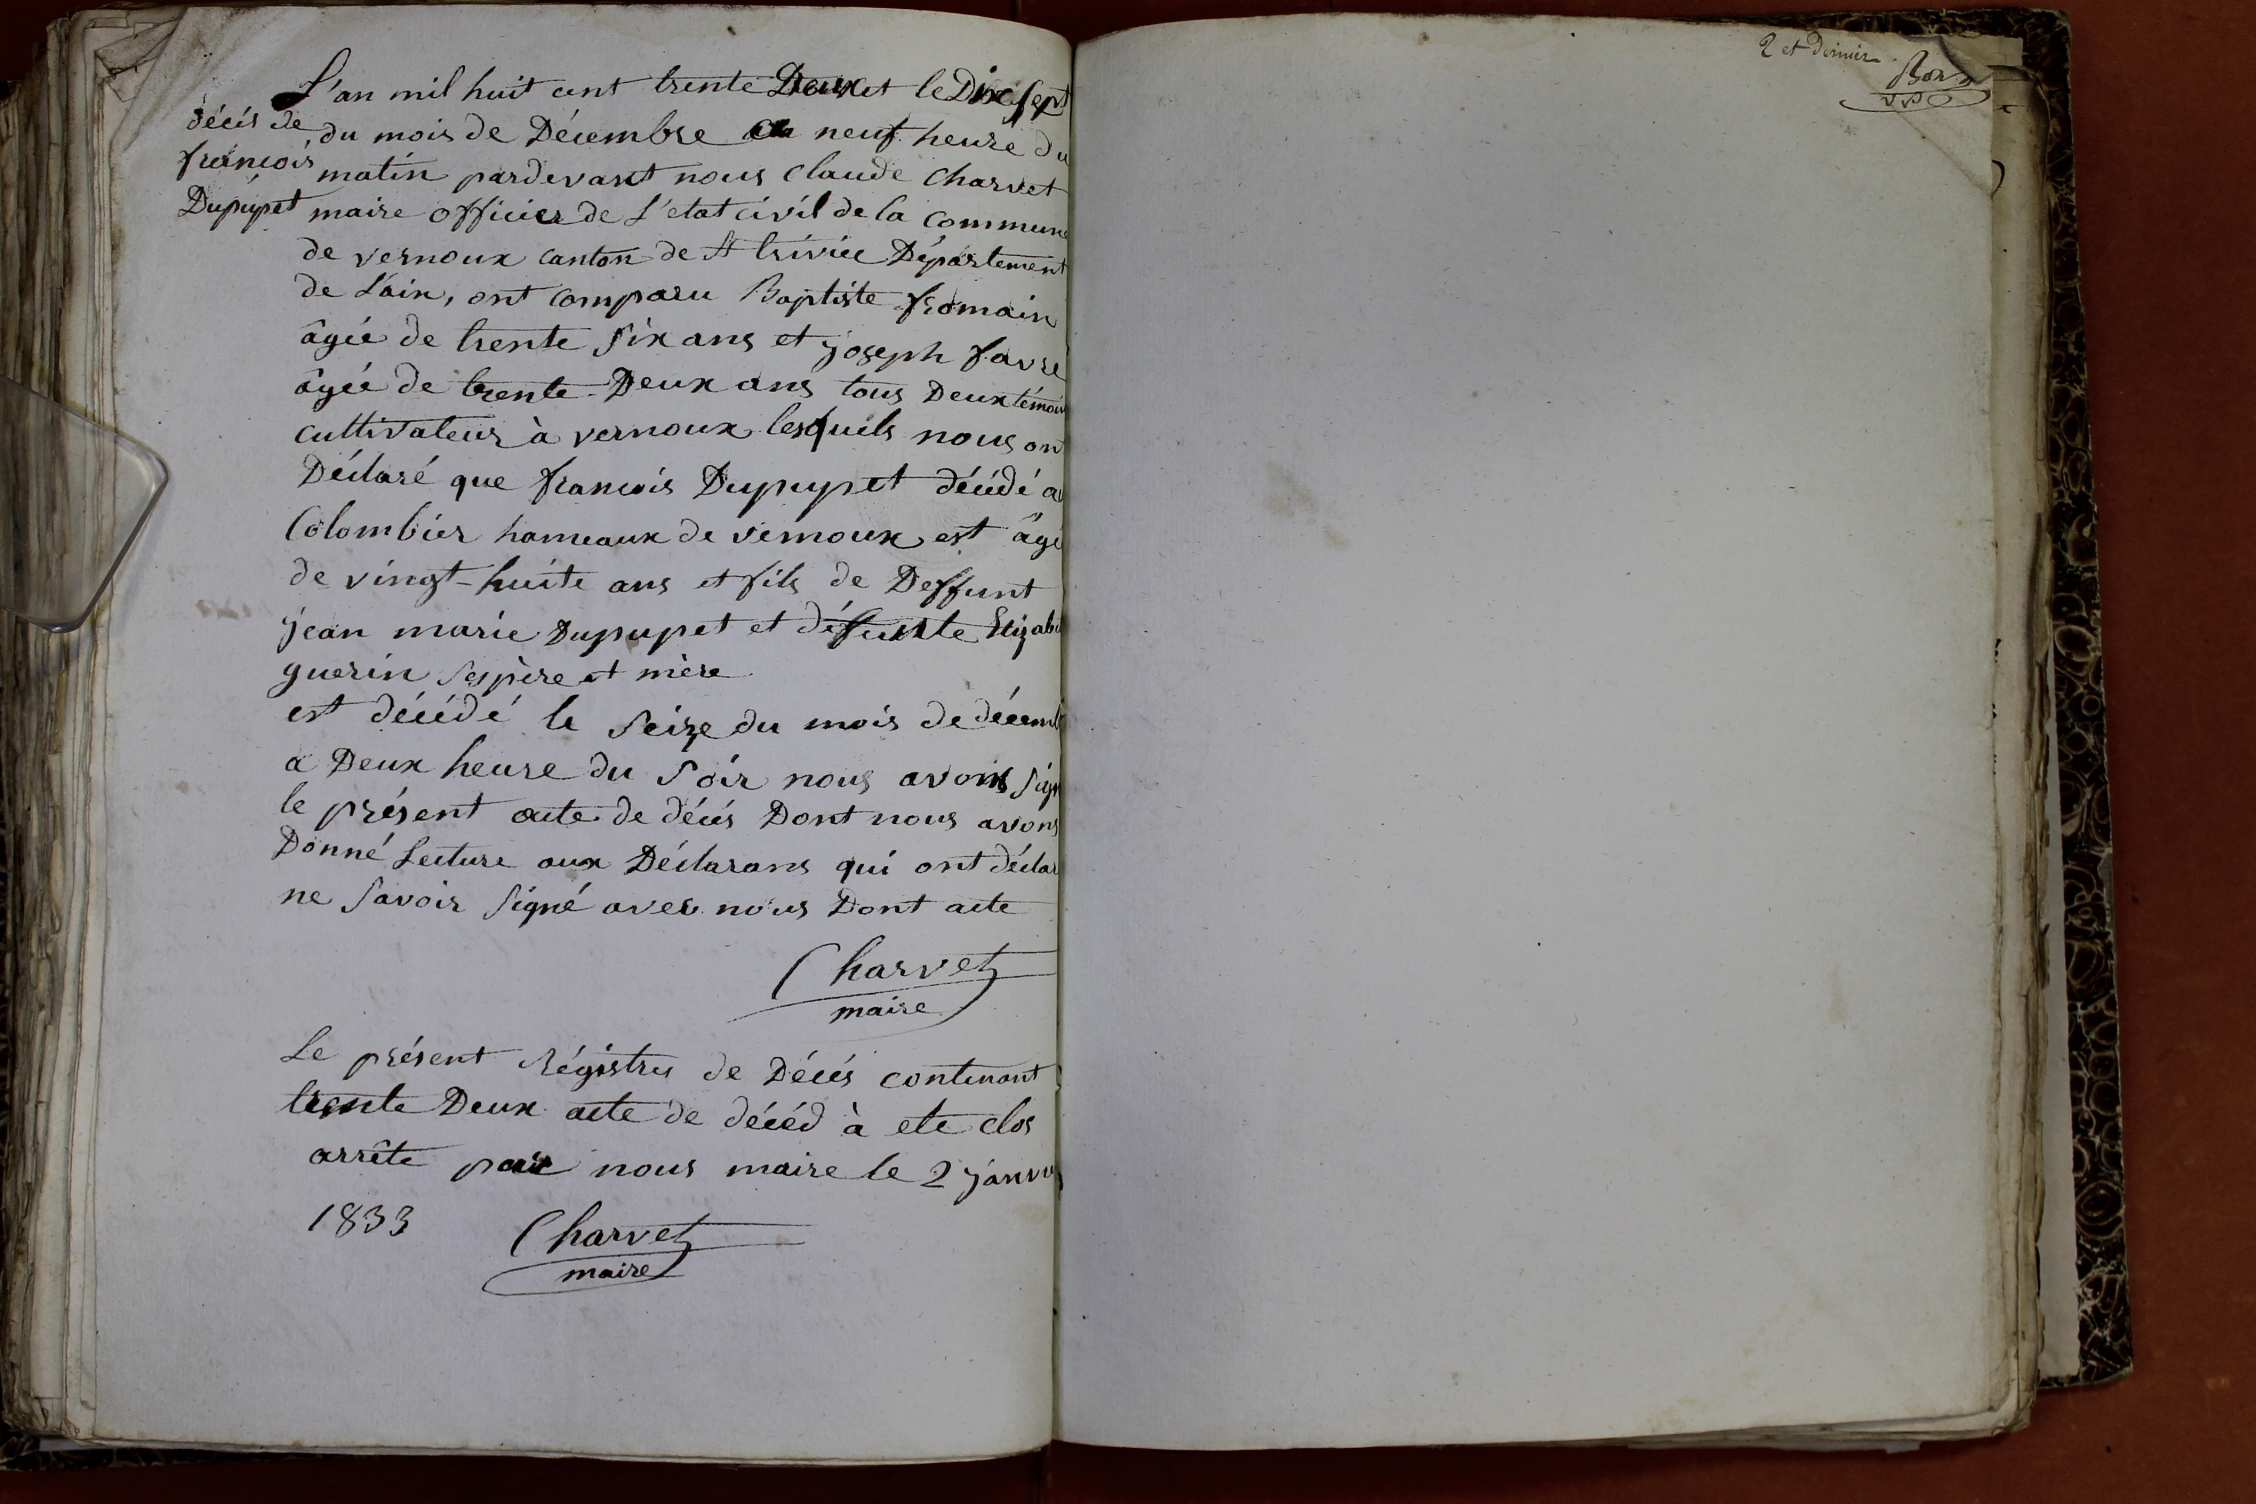 décès de
françois
Dupupet
L'an mil huit cent trente Deux et le Dix sept
du mois de Décembre a neuf heure du
matin pardevant nous Claude Charvet
maire officier de L'etat civil de la commune
de vernoux canton de St trivier Département
de L'ain, ont comparu Baptiste fromain
âgée de trente six ans et joseph favre
âgée de trente Deux ans tous Deux témoin
cultivateur à vernoux lesquels nous ont
Déclaré que françois Dupupet décédé a
Colombier hameaux de vernoux est âgé
de vingt-huite ans et fils de Deffunt
jean marie Dupupet et défunte Elizabe
guerin ses père et mère
est décédé le seize du mois de décemb
a Deux heure du soir nous avons sign
le présent acte de décès Dont nous avons
Donné Lecture aux Déclarans qui ont déclar
ne savoir signé avec nous Dont acte
Charvet
maire
Le présent Régistre de Décès contenant
trente Deux acte de décéd à ete clos
arrête par nous maire le 2 janvier
1833 Charvet
maire
2 et dernier